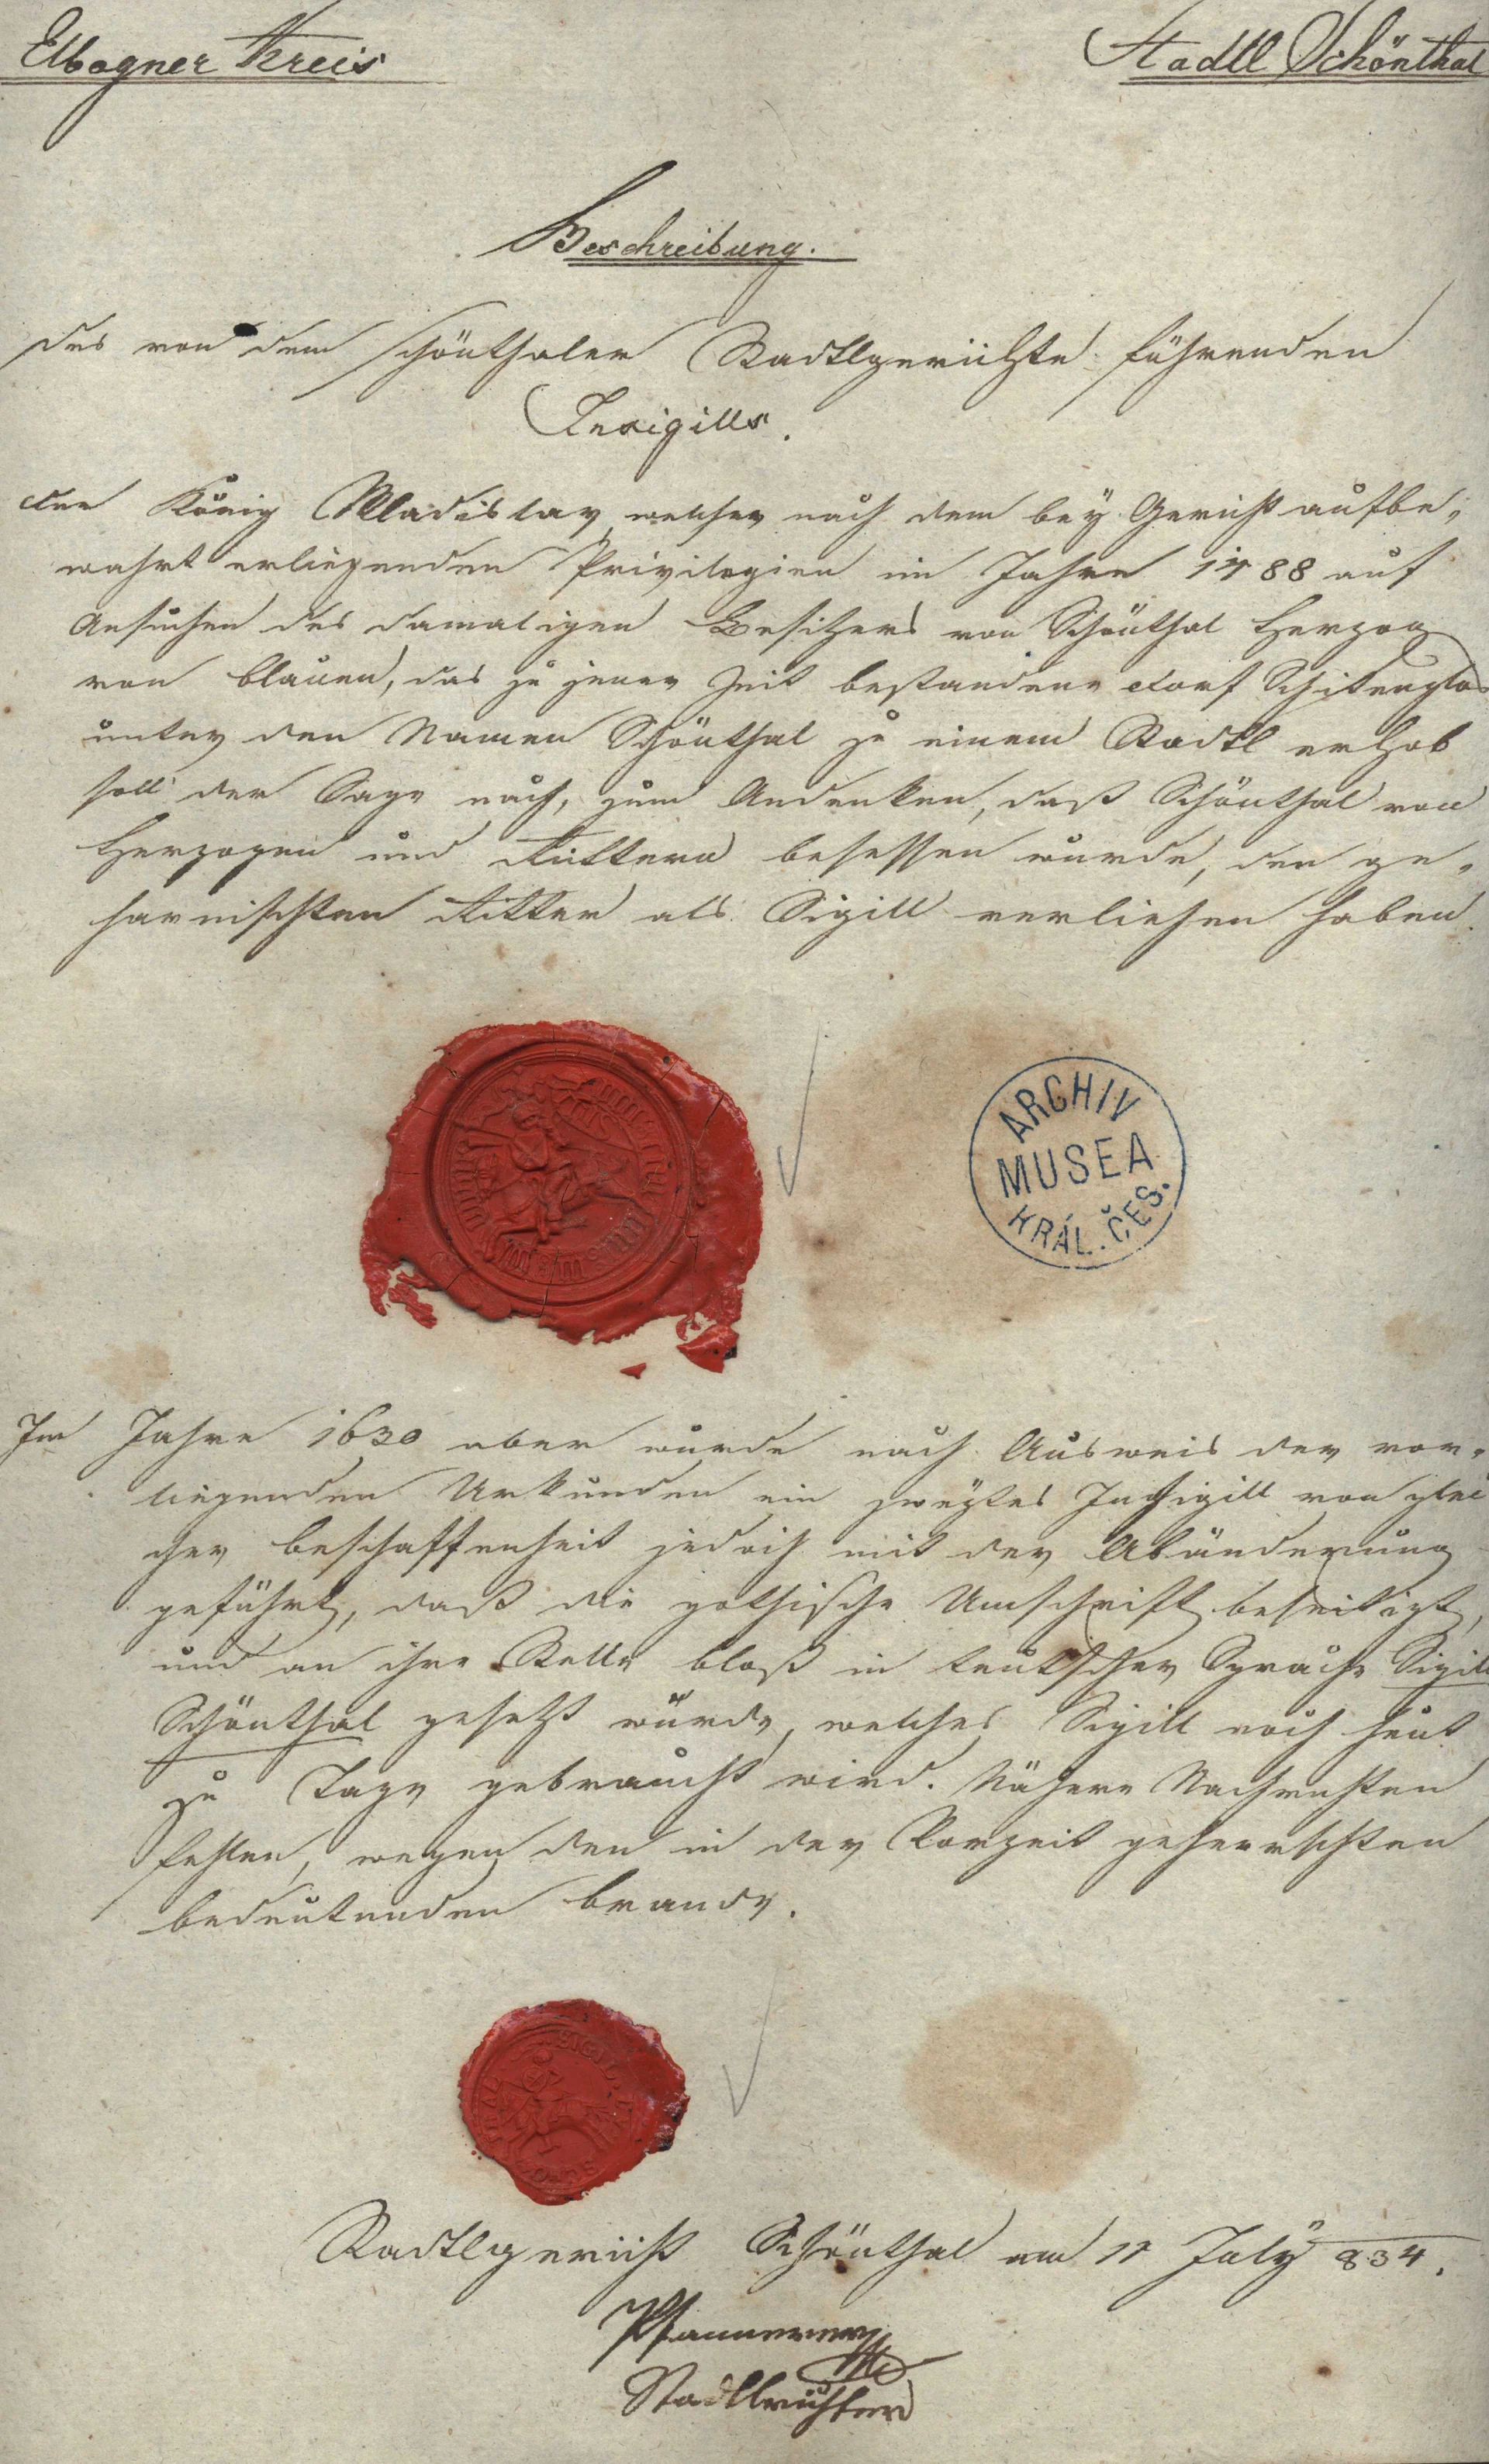 Elbogner Kreis
Stadtl Schönthal
Beschreibung.
des von dem Schönthaler Stadtlgerichte führenden
Insigills.
Der König Wladislav, welcher nach dem bey Gericht aufbe-
wahrt erliegenden Privilegien im Jahre 1488 auf
Ansuchen des damaligen Besitzers von Schönthal Herzog
von Blauen, das zu jener Zeit bestandene Dorf
unter den Namen Schönthal zu einem Stadtl erhob
soll der Sage nach, zum Andenken, daß Schönthal von
Herzogen und Rittern besessen wurde, den ge-
harnischten Ritter als Sigill verliehen haben.
ARCHIV
MUSEA
KRÁL. ČES.
Im Jahre 1630 aber wurde nach Ausweis der vor-
liegenden Urkunden ein zweytes Insigill von glei
cher Beschaffenheit jedoch mit der Abänderung
geführt, daß die gothische Umschrift beseitigt,
und an ihre Stelle bloß in teutscher Sprache Sigill
Schönthal gesetzt wurde, welches Sigill noch heut
zu Tage gebraucht wird. Nähere Nachrichten
fehlen, wegen den in der Vorzeit geherrschten
bedeutenden Brande.
SIGIL
Stadtlgericht Schönthal am 11 July 834.
Pfannerer
Stadtlrichter